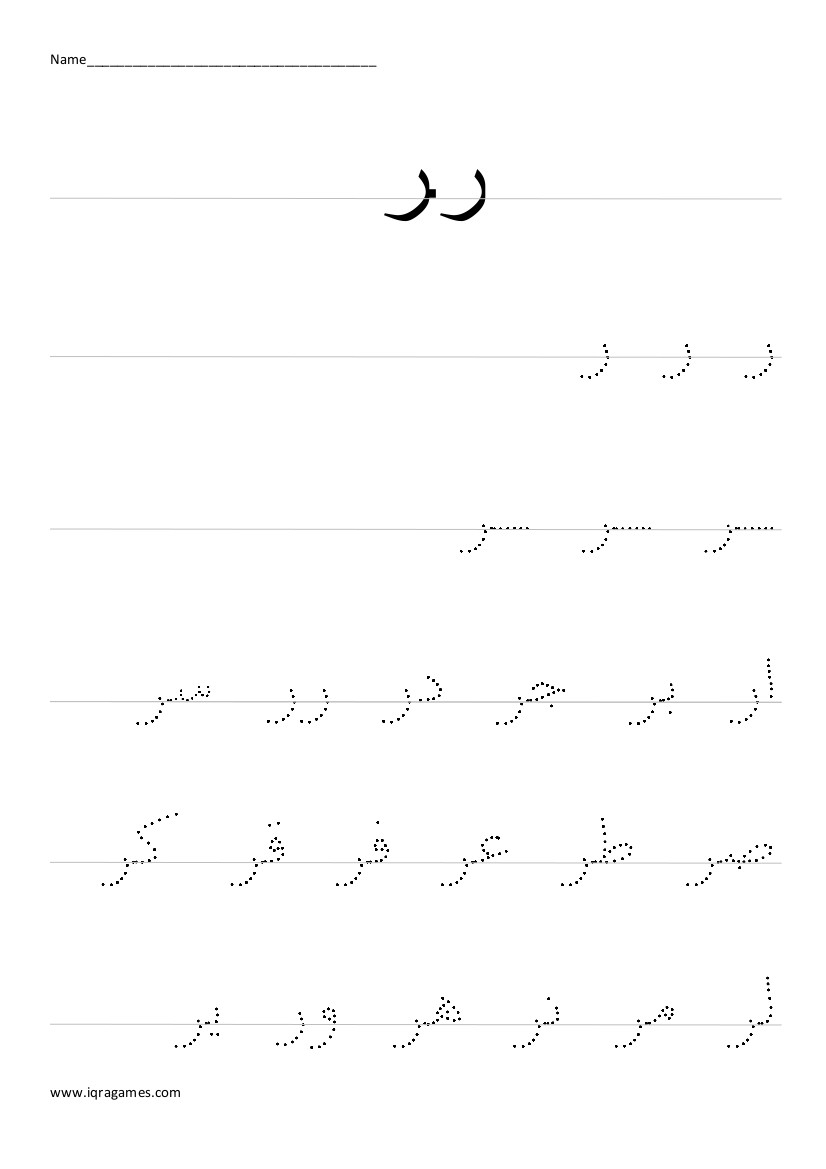 Name_____________________________________
ر ـر
ر ر ر
ـر ـر ـر
ار بر جر در رر سر
صر طر عر فر قر كر
لر مر نر هر ور ير
www.iqragames.com